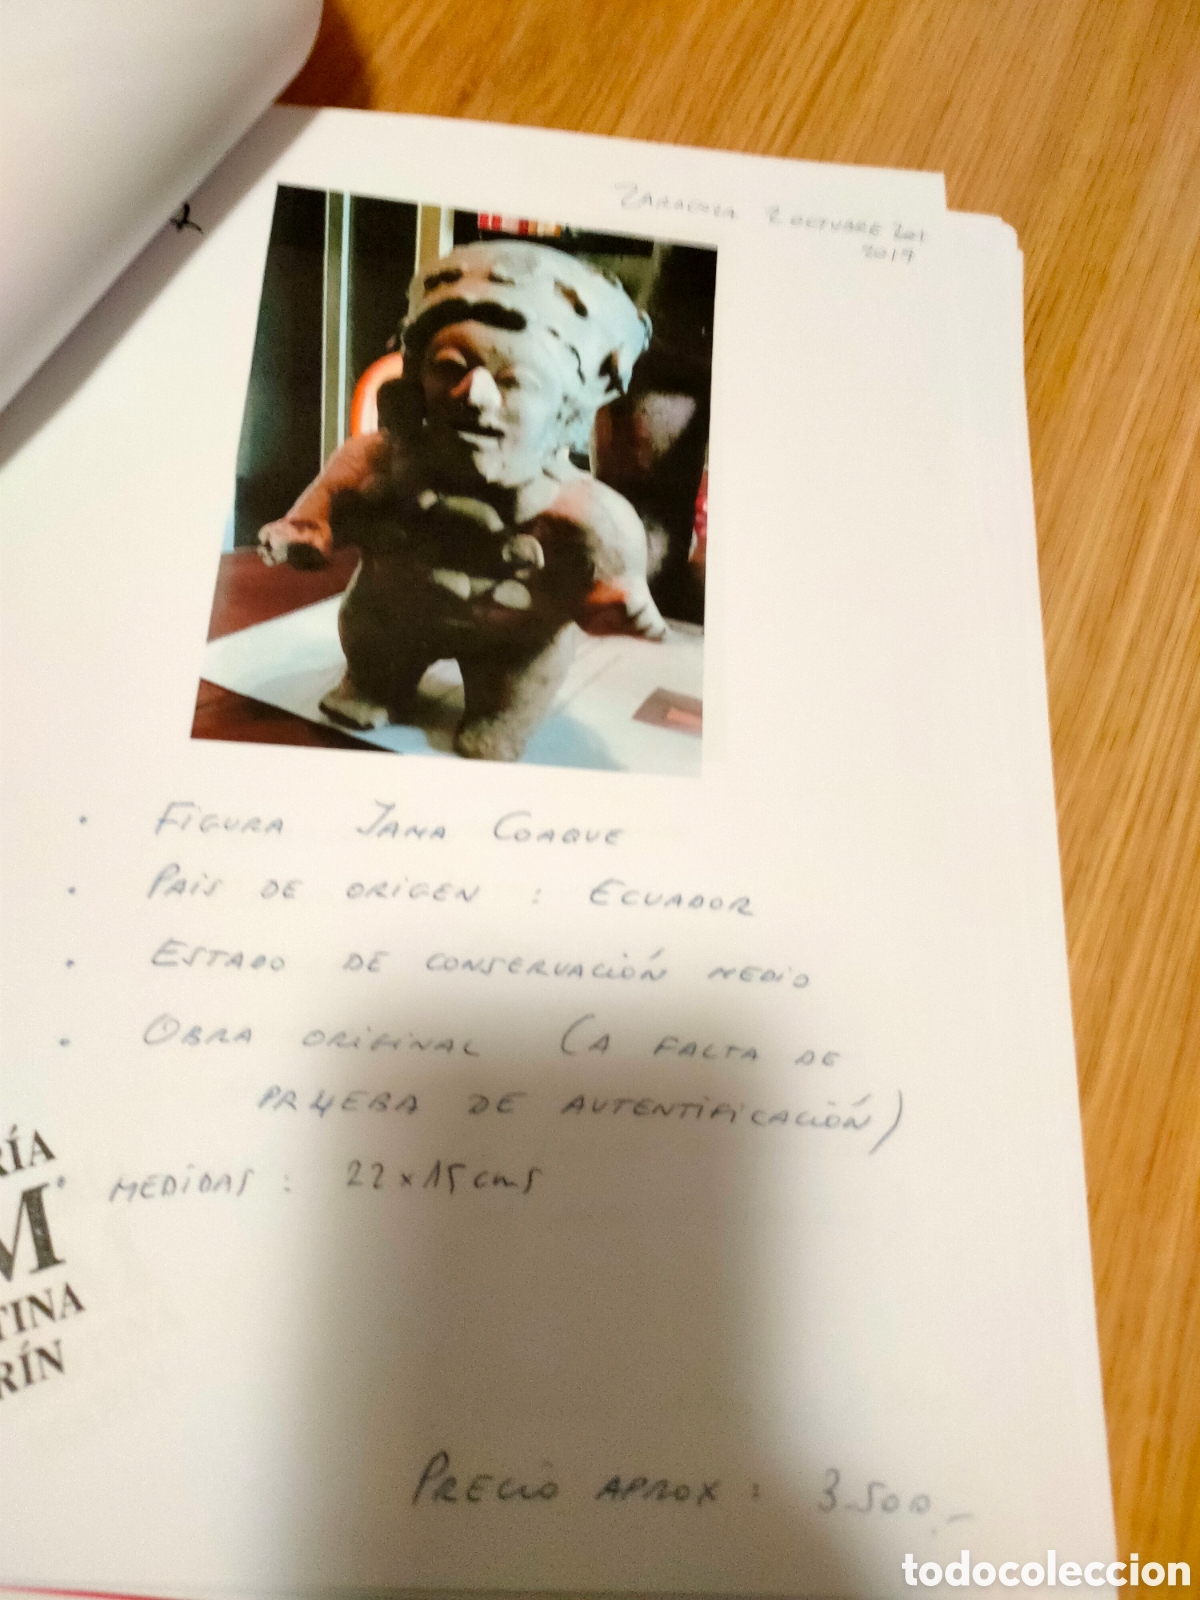 ZARAGOZA 2 OCTUBRE 201
2019
• FIGURA JAMA COAQUE
• PAIS DE ORIGEN : ECUADOR
• ESTADO DE CONSERVACIÓN MEDIO
• OBRA ORIGINAL (A FALTA DE
PRUEBA DE AUTENTIFICACIÓN)
• MEDIDAS : 22 x 15 cms
RÍA
M
TINA
RÍN
PRECIO APROX : 3.500.-
todocoleccion